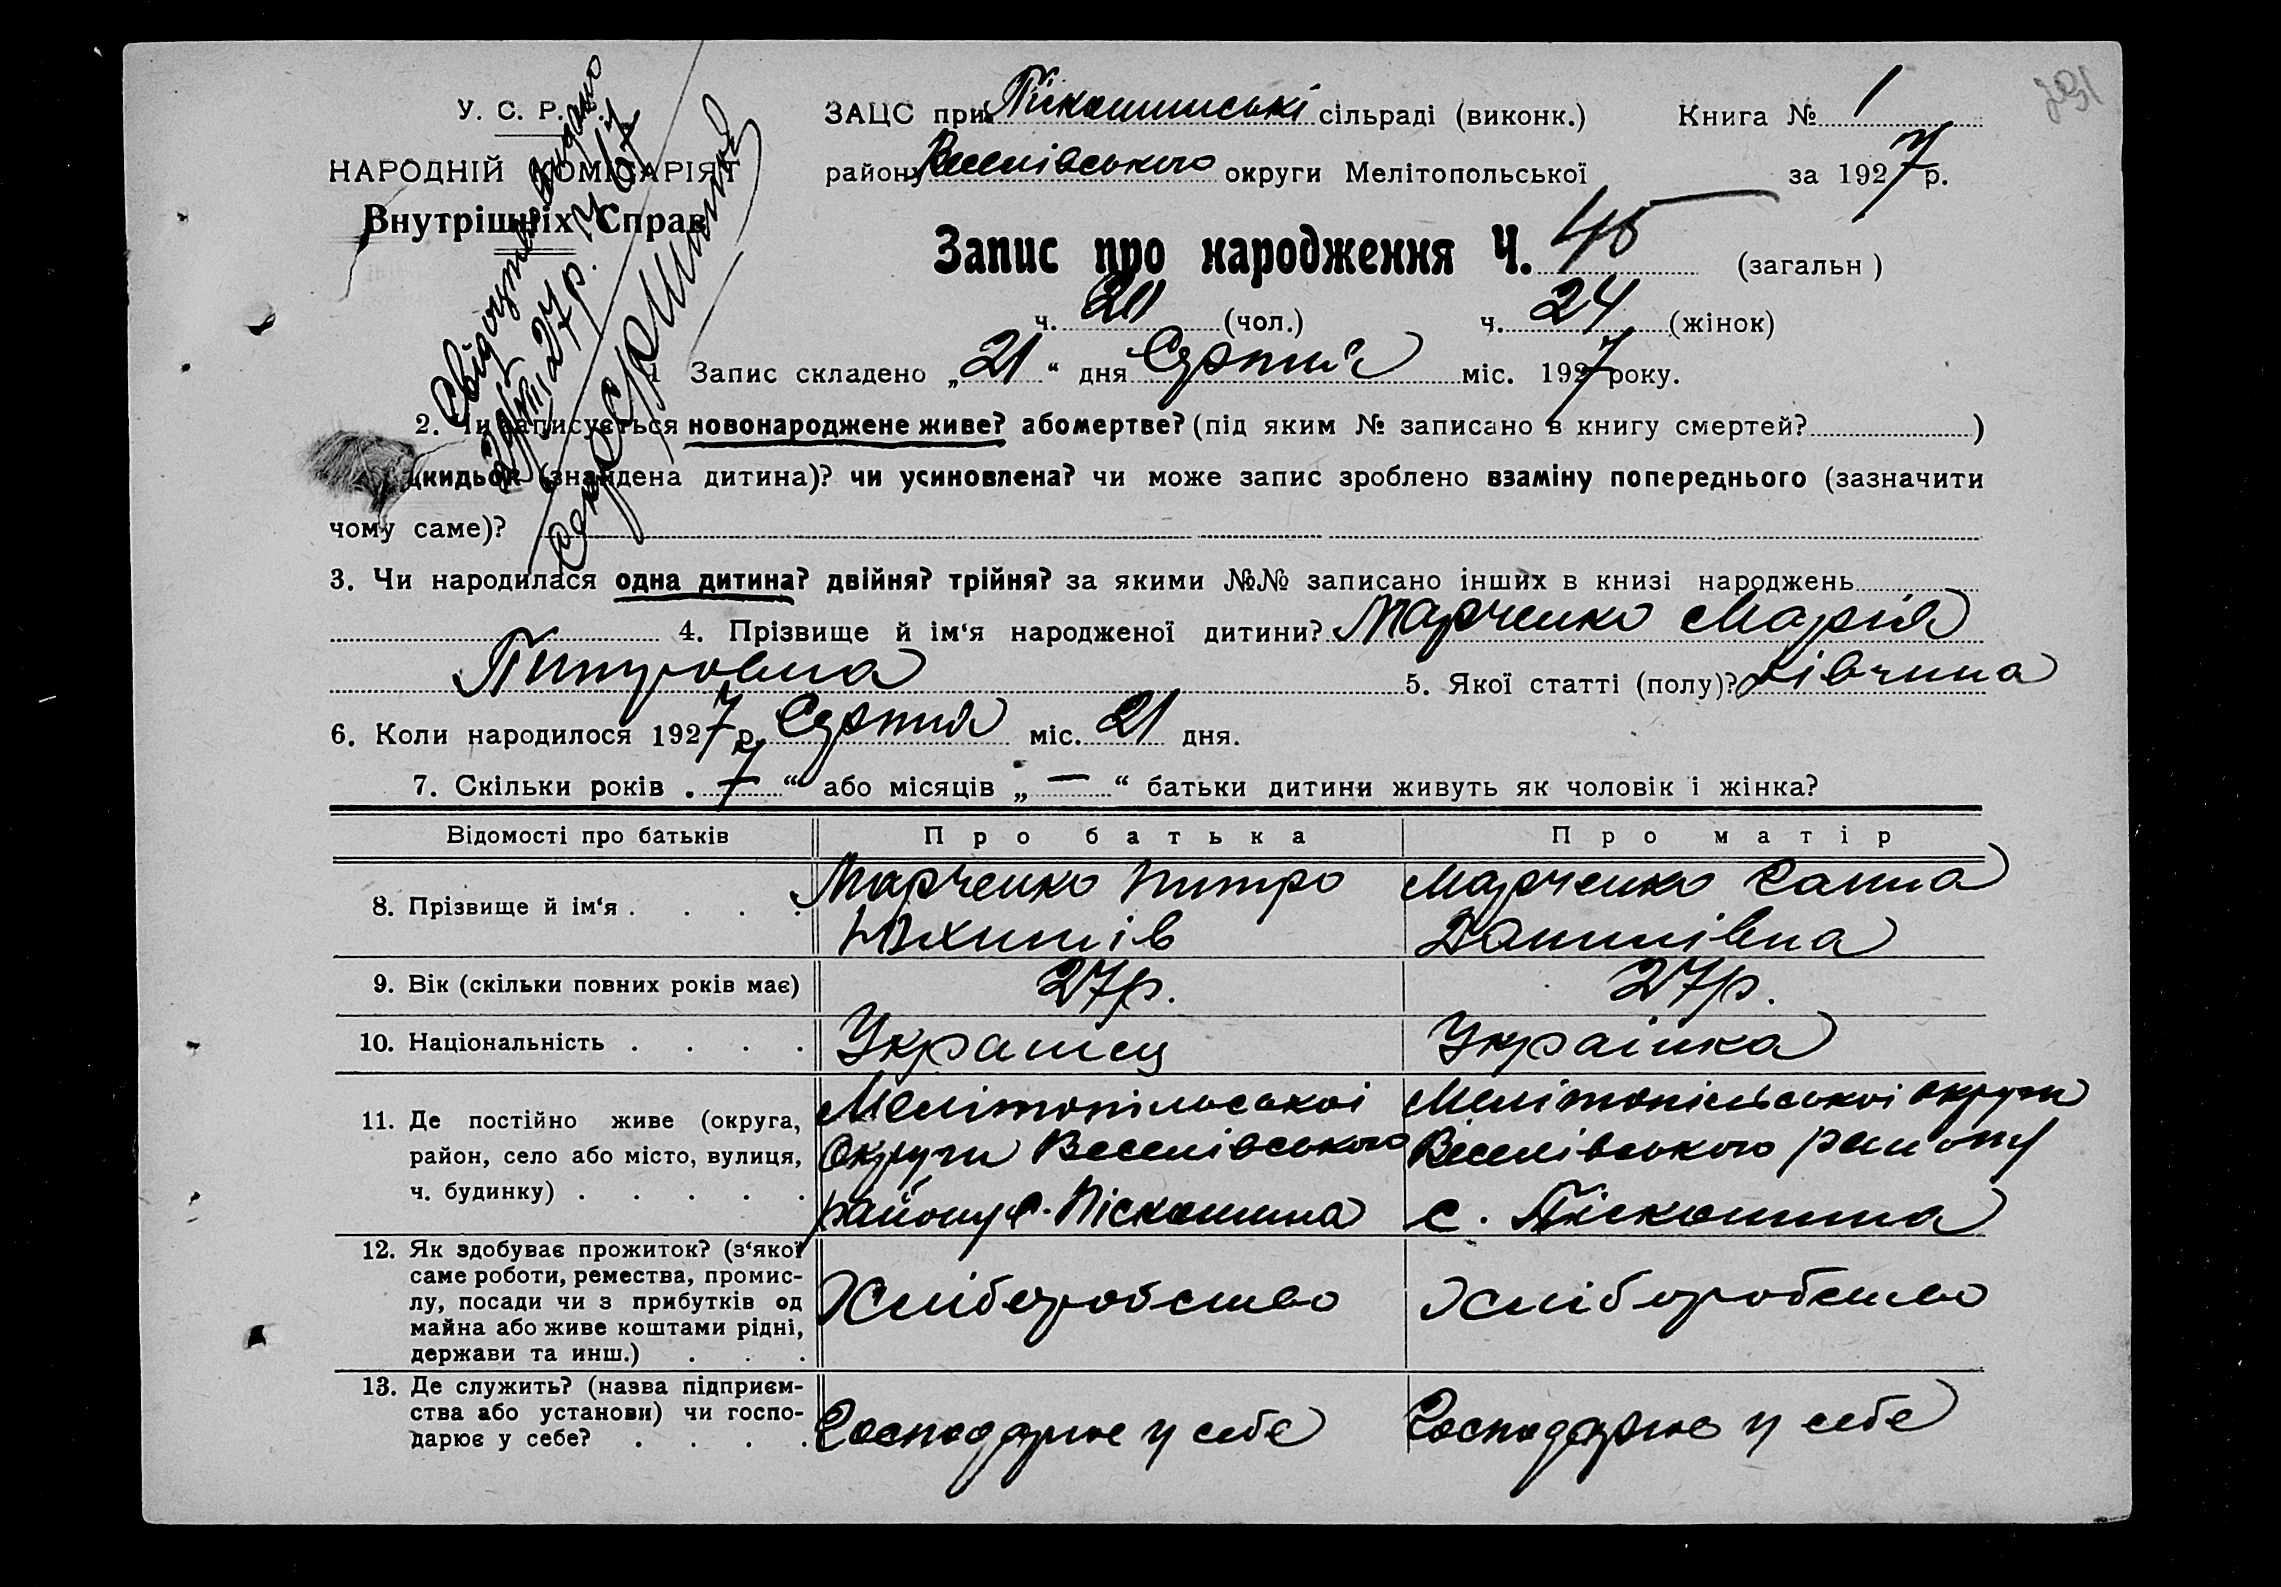 У. С. Р. Р.
НАРОДНІЙ КОМІСАРІЯТ
Внутрішніх Справ
Свідоцтво видано
21/VIII 27 р. ч 67
ЗАЦС при Піскошинські сільраді (виконк.) Книга № 1
району Веселівського округи Мелітопольської за 1927 р.
Запис про народження Ч. 45 (загальн)
ч. (чол.) ч. 24 (жінок)
1 Запис складено „21“ дня Серпня міс. 1927 року.
2. Чи записується новонароджене живе? або мертве? (під яким № записано в книгу смертей? )
підкидьок (знайдена дитина)? чи усиновлена? чи може запис зроблено взаміну попереднього (зазначити
чому саме)?
3. Чи народилася одна дитина? двійня? трійня? за якими №№ записано інших в книзі народжень
4. Прізвище й ім‘я народженої дитини? Марченко Марія
Питровна 5. Якої статті (полу)? Дівчина
6. Коли народилося 1927 р. Серпня міс. 21 дня.
7. Скільки років „ 7 “ або місяців „ — “ батьки дитини живуть як чоловік і жінка?
Відомості про батьків Про батька Про матір
8. Прізвище й ім‘я . . . . Марченко Питро Марченко Ганна
Юхимів Данилівна
9. Вік (скільки повних років має) 27р. 27р.
10. Національність . . . . Украінец Украінка
11. Де постійно живе (округа, Мелітопільськоі Мелітопільськоі округи
район, село або місто, вулиця, Округи Веселівського Веселівського району
ч. будинку) . . . . . району с. Піскошина с. Піскошина
12. Як здобуває прожиток? (з‘якої
саме роботи, ремества, промис-
лу, посади чи з прибутків од Хліборобство Хліборобство
майна або живе коштами рідні,
держави та инш.) . . .
13. Де служить? (назва підприєм-
ства або установи) чи госпо- Господарює у себе Господарює у себе
дарює у себе? . . . .